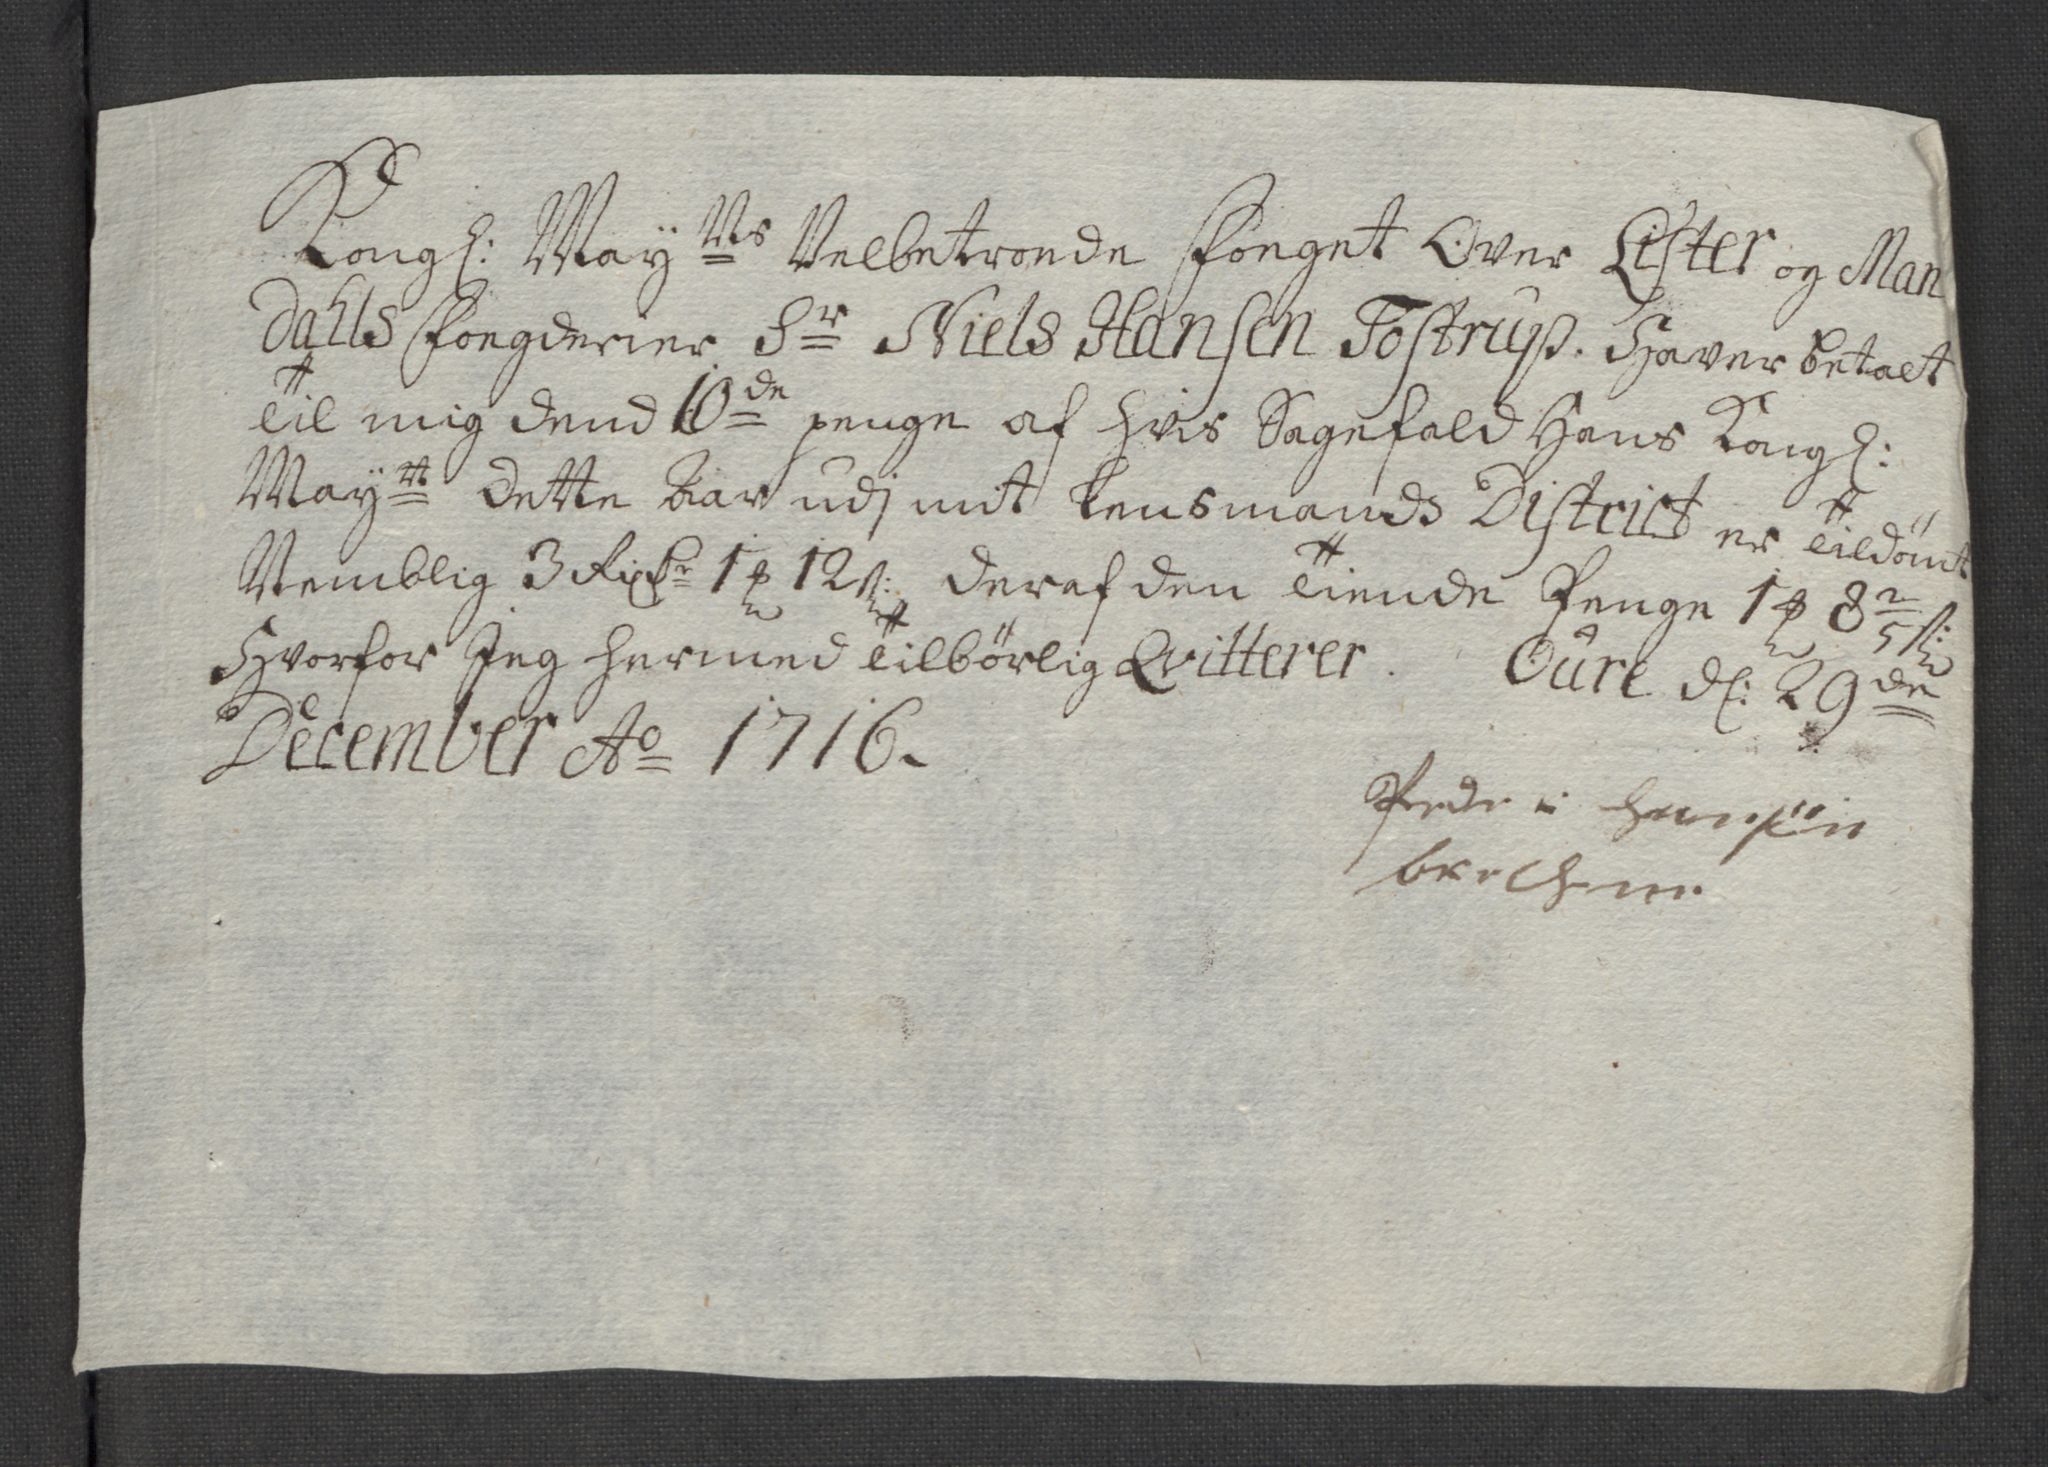 Kongl: May^tts Velbetroede Foeget Over Lister og Man
dahls Foegderier Hr Niels Hansen Tostrup. Haver betalt
Til mig dend 10de penge af hvis Sagefald Hans Kongl:
May^tt dette Aar udj mit Lensmands District er Tildömt
Nemblig 3 Rixdr 1 ₰ 12 s: deraf den Tiende Penge 1 ₰ 8 2/5 s:
Hvorfor Jeg hermed Tilbörlig Qvitterer. Öure dl: 29de
December Ao 1716.
Peder Hansön